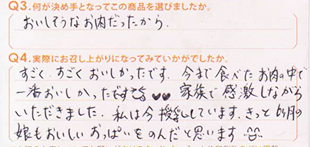 Q3.何が決め手となってこの商品を選びましたか。
おいしそうなお肉だったから。
Q4.実際にお召し上がりになってみていかがでしたか。
すごくすごくおいしかったです。今まで食べたお肉の中で
一番おいしかったです♥♥ 家族で感激しながら
いただきました。私は今授乳しています。きっと6ヶ月の
娘もおいしいおっぱいをのんだと思います